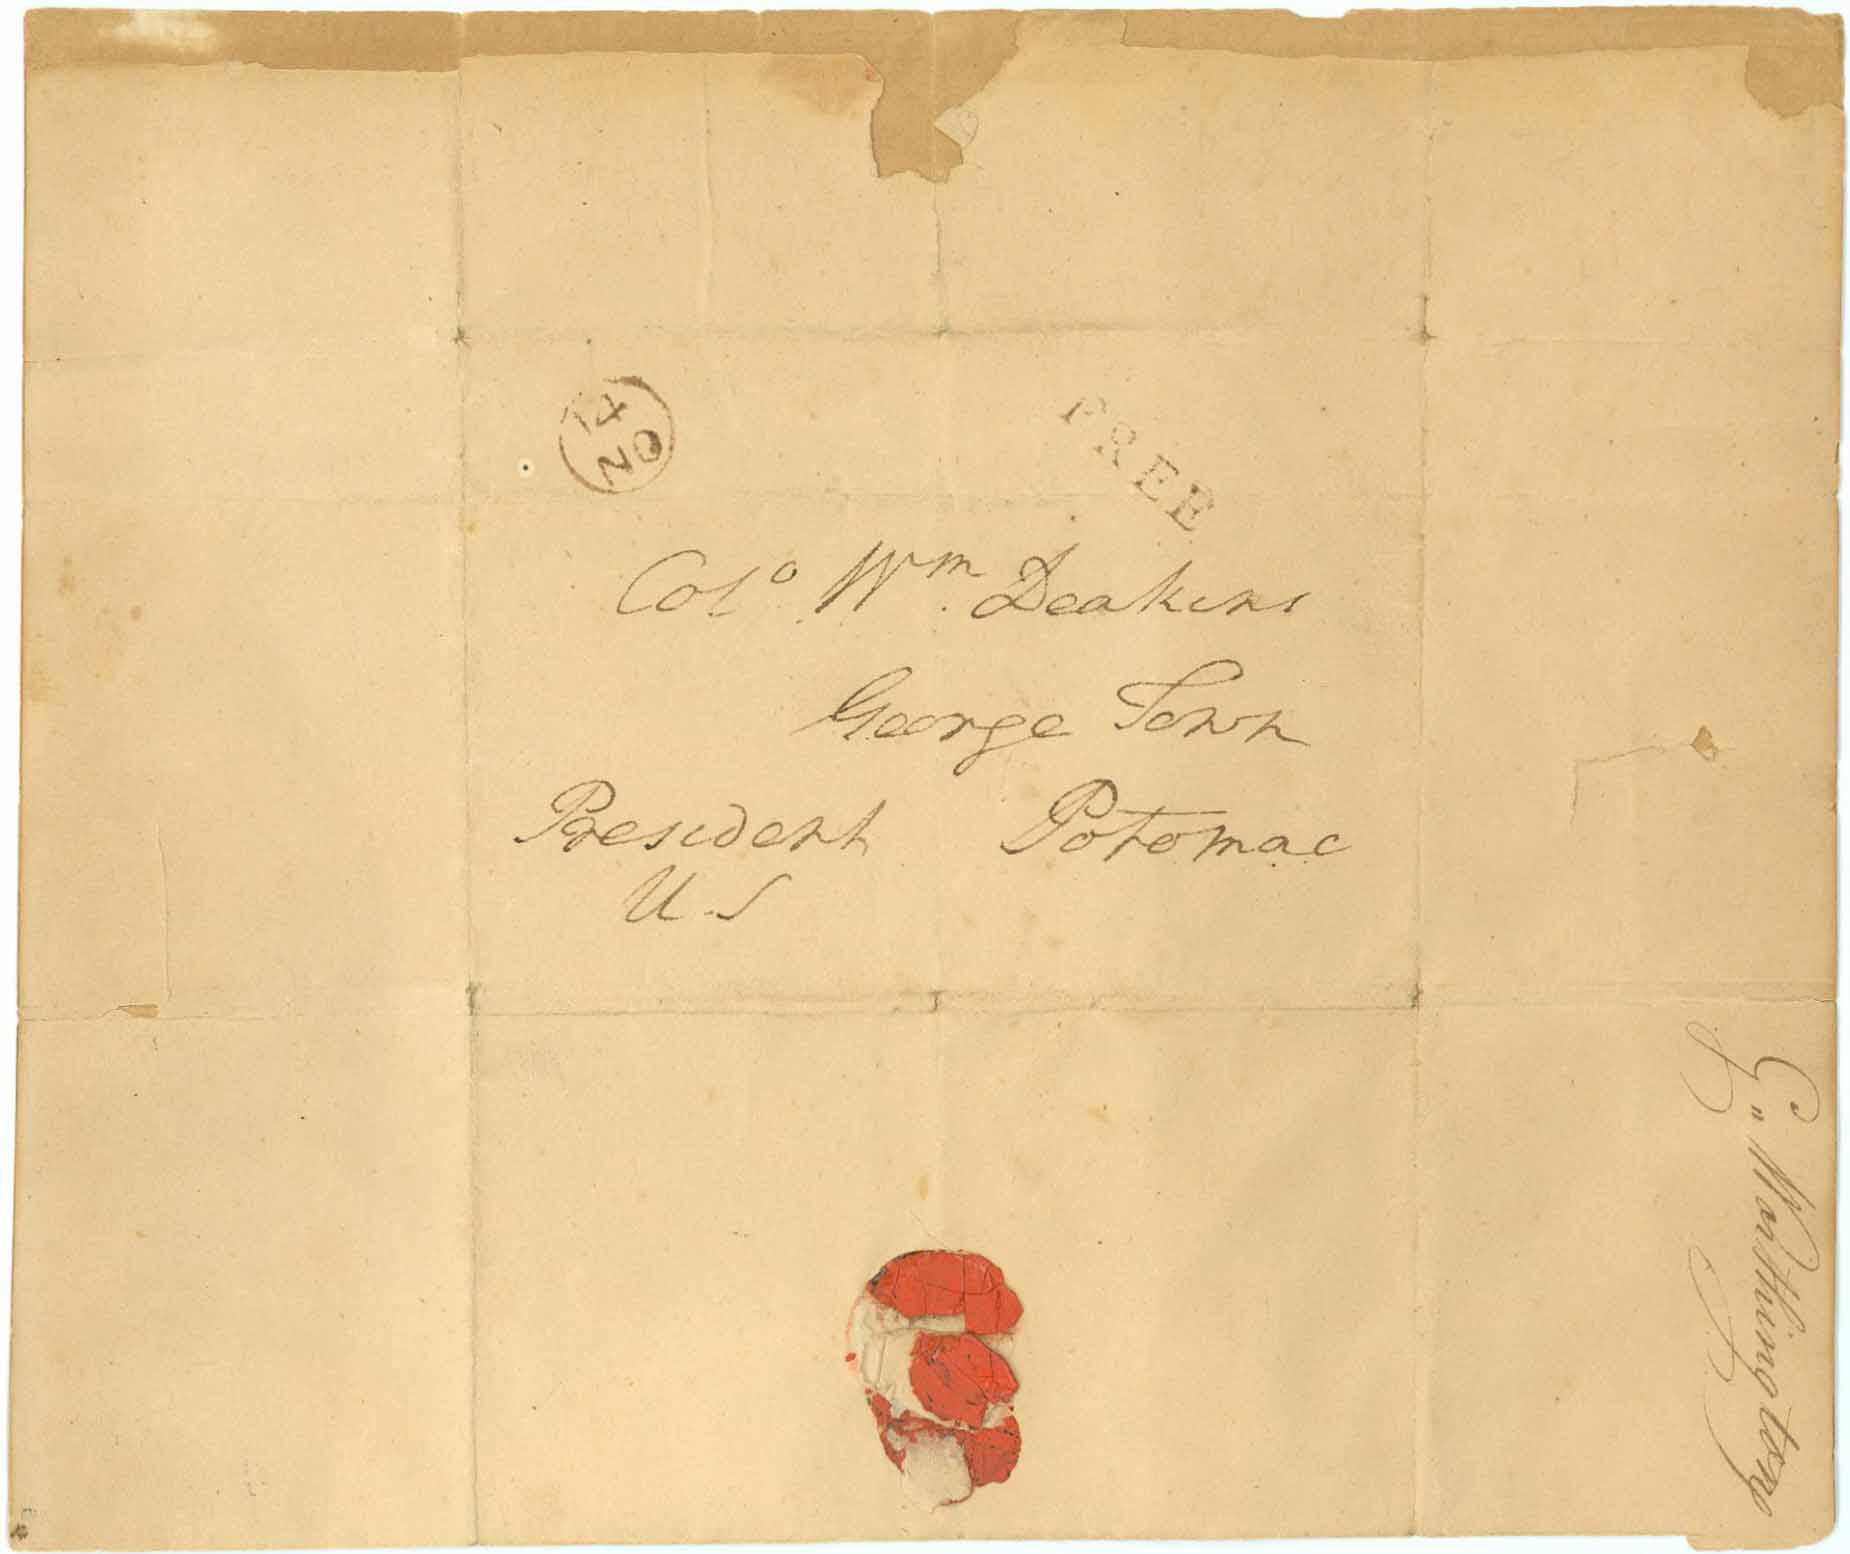 14
NO
FREE
Colo. Wm. Deakins
George Town
President Potomac
U.S
G" Washington